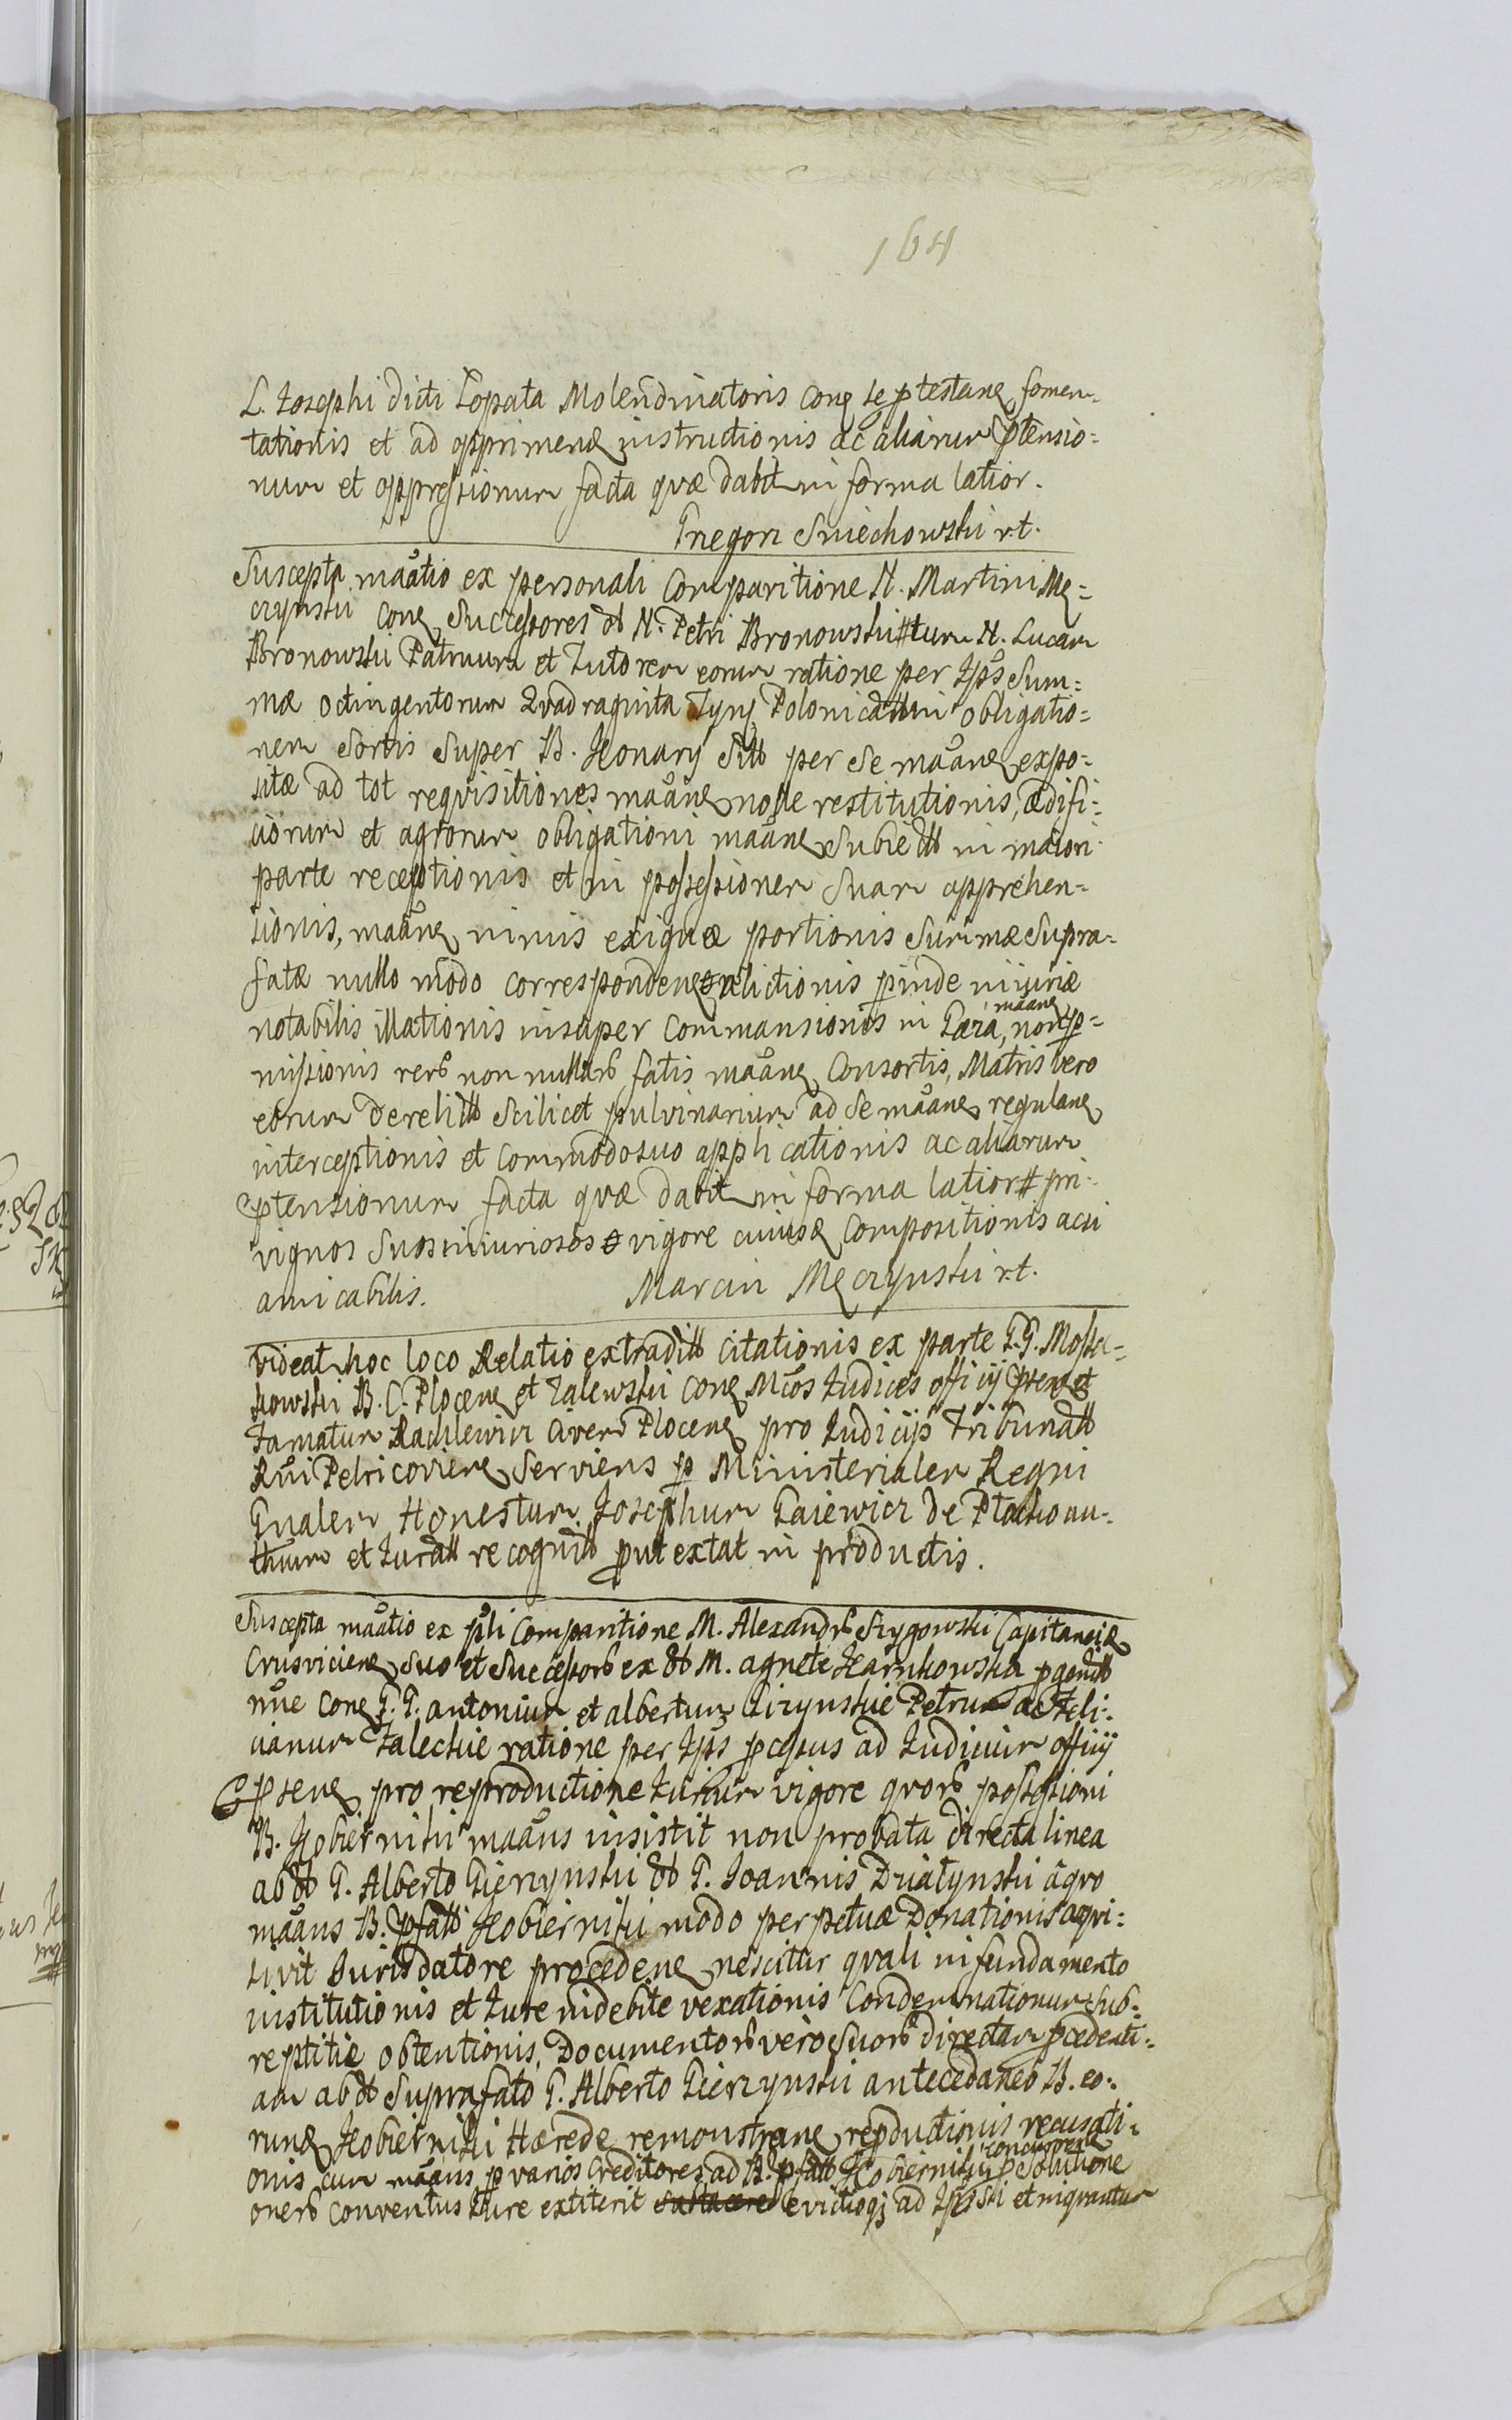 164
L. Josephi dicti Łopata Molendinatoris conq se ptestanq fomen-
tationis et ad opprimenq instructionis ac aliarum ptensio=
num et oppressionum facta quæ dabit in forma latior.
Gregorz Sniechowski r.t.
Suscepta maatio ex personali Comparitione N. Martini Mę=
czynski conq Successores dd N. Petri Bronowski # tum N. Lucam
Bronowski Patruum et Tutorem eorum ratione per Jpos Sum=
mæ octingentorum Quadraginta Tynf. Polonicall in obligatio=
nem Sortis Super B. Konary Sitt per Se maanq expo=
sitæ ad tot requisitiones maanq nolle restitutionis, ædifi=
ciorum et agrorum obligationi maanq Subiectt in maiori
parte receptionis et in possessionem Suam apprehen=
sionis, maanq nimis exiguæ portionis Summæ Supra=
fatæ nullo modo correspondenq relictionis pinde iniuriæ
notabilis illationis insuper Commansionis in Para, maanq non p=
missionis rerb non nullarb fatis maanq Consortis, Matris vero
eorum derelictt Scilicet pulvinarium ad Se maanq regulanq
interceptionis et Commodo suo applicationis ac aliarum
ptensionum facta quæ dabit in forma latior # pri=
vignos Suos iniuriosos vigore cuiusq Compositionis acsi
amicabilis. Marcin Męczynski r.t.
videat hoc loco Relatio extraditt Citationis ex parte G.G. Mosta-
kowski B.C. Plocenq et Zalewski conq Mcos Judices officij psent et
Famatum Rachlewicz Civem Plocenq pro Judicijs Tribunatt
Rni Petricovienq Serviens p Ministerialem Regni
Gnalem Honestum Josephum Gaiewicz de Płocko au-
thum et Juratt recognitt put extat in productis.
Suscepta maatio ex pli Comparitione M. Alexandrb Szygowski Capitaneiq
Crusvicienq suo et Successorb ex dd M. agnete Jarnkowska pgenitt
nne conq G.G. antonium et albertum Girzynskie Petrum ac Feli=
cianum Zaleckie ratione per Jpos pcessus ad Judicium officij
psenq pro reproductione Jurium vigore quorb possessioni
B. Kobierniki maanus insistit non probata directa linea
ab dd G. Alberto Gierzynski dd G. Joannis Działynski a quo
maanus B. pfatt Kobierniki modo perpetuæ Donationis aqvi=
sivit Jurisdatore procedenq nescitur quali in fundamento
institutionis et Jure indebite vexationis Condemnationum Sub=
reptitiæ obtentionis, Documentorb vero Suorb directam pcedenti=
am ab dd Suprafato G. Alberto Gierzynski antecedaneo B. eo=
runq Kobierniki Hærede remonstranq reproductionis recusati=
onis cum maanus p varios Creditores ad B. pfatt Kobierniki concurrenq p Solutione
onerb conventus Jure extiterit evictioqj ad Jpos Sti et migrantur